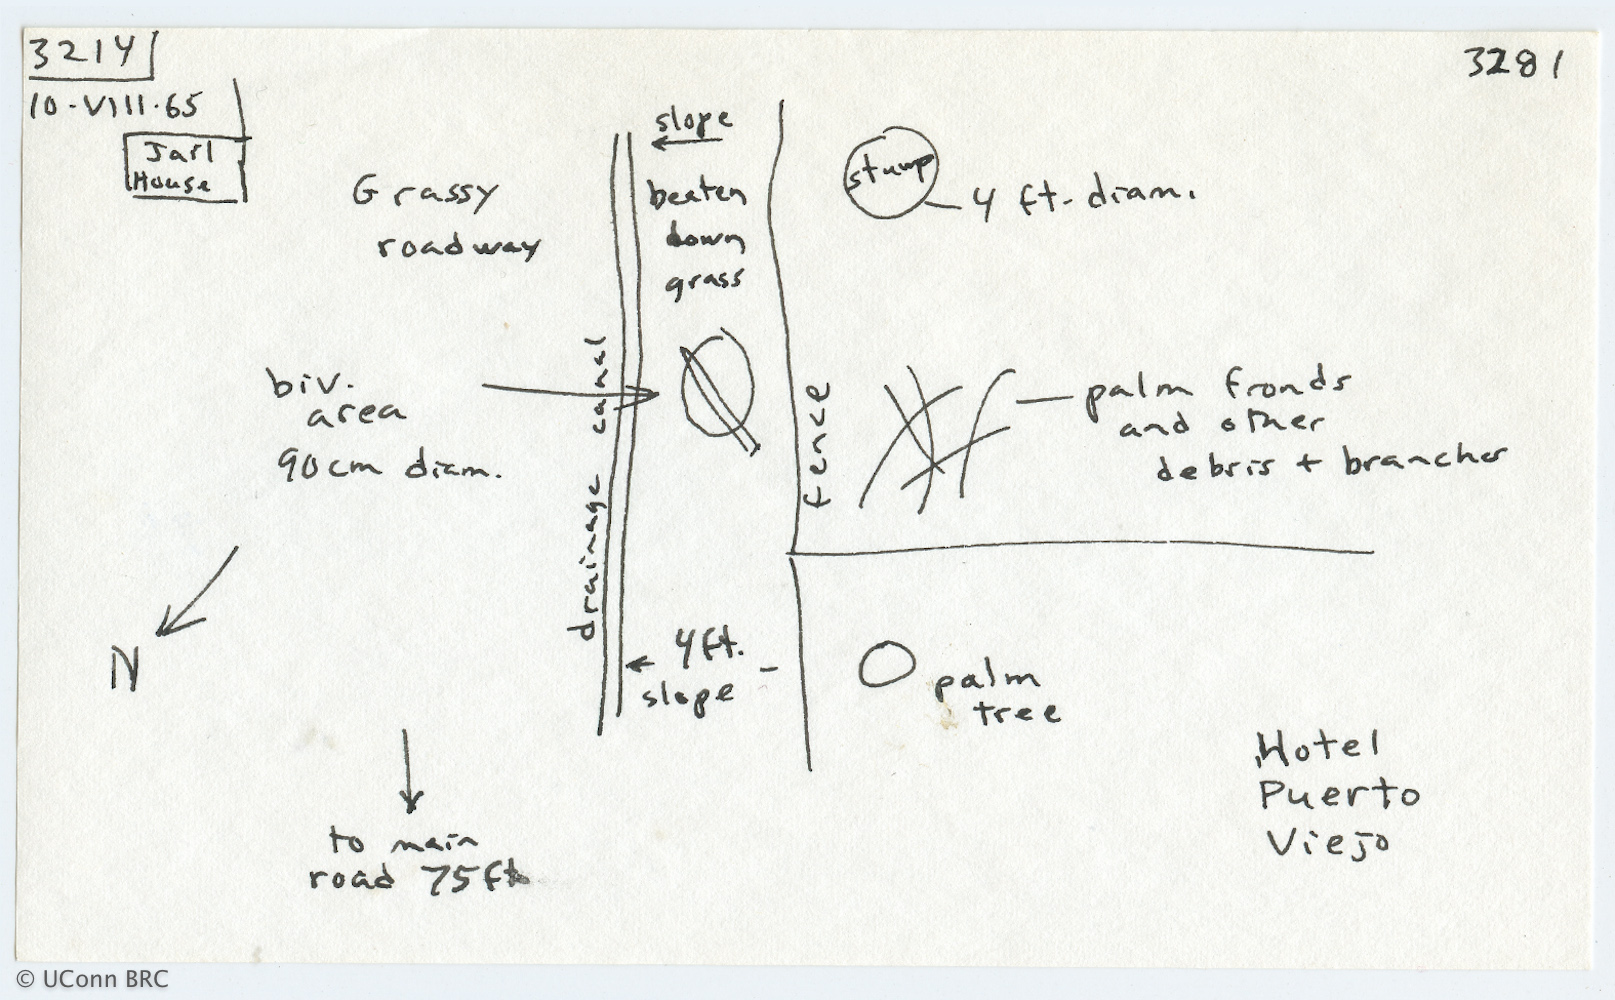 3214
3281
10-VIII-65
Jarl
House
Grassy
roadway
slope
beaten
down
grass
stump
4 ft. diam.
biv.
area
90cm diam.
drainage canal
fence
palm fronds
and other
debris + branches
N
4ft.
slope
palm
tree
to main
road 75ft
Hotel
Puerto
Viejo
© UConn BRC